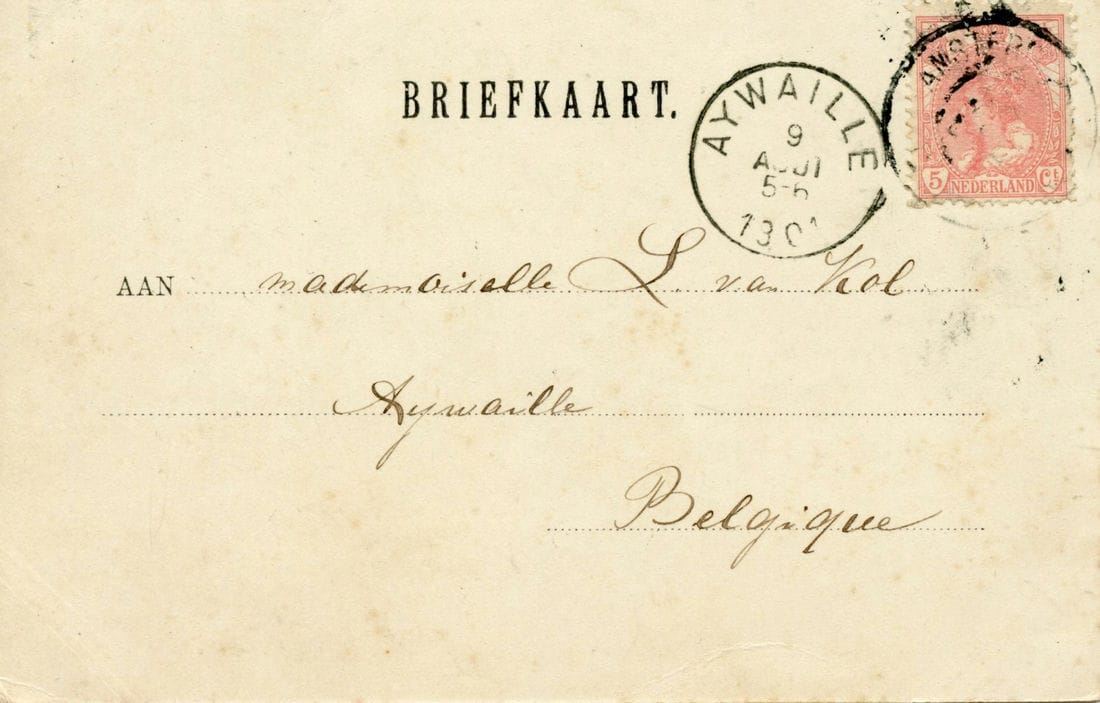 BRIEFKAART.
AYWAILLE
9
AOUT
5-6
1901
5 NEDERLAND Ct
AAN mademoiselle L. van Kol
Aywaille
Belgique